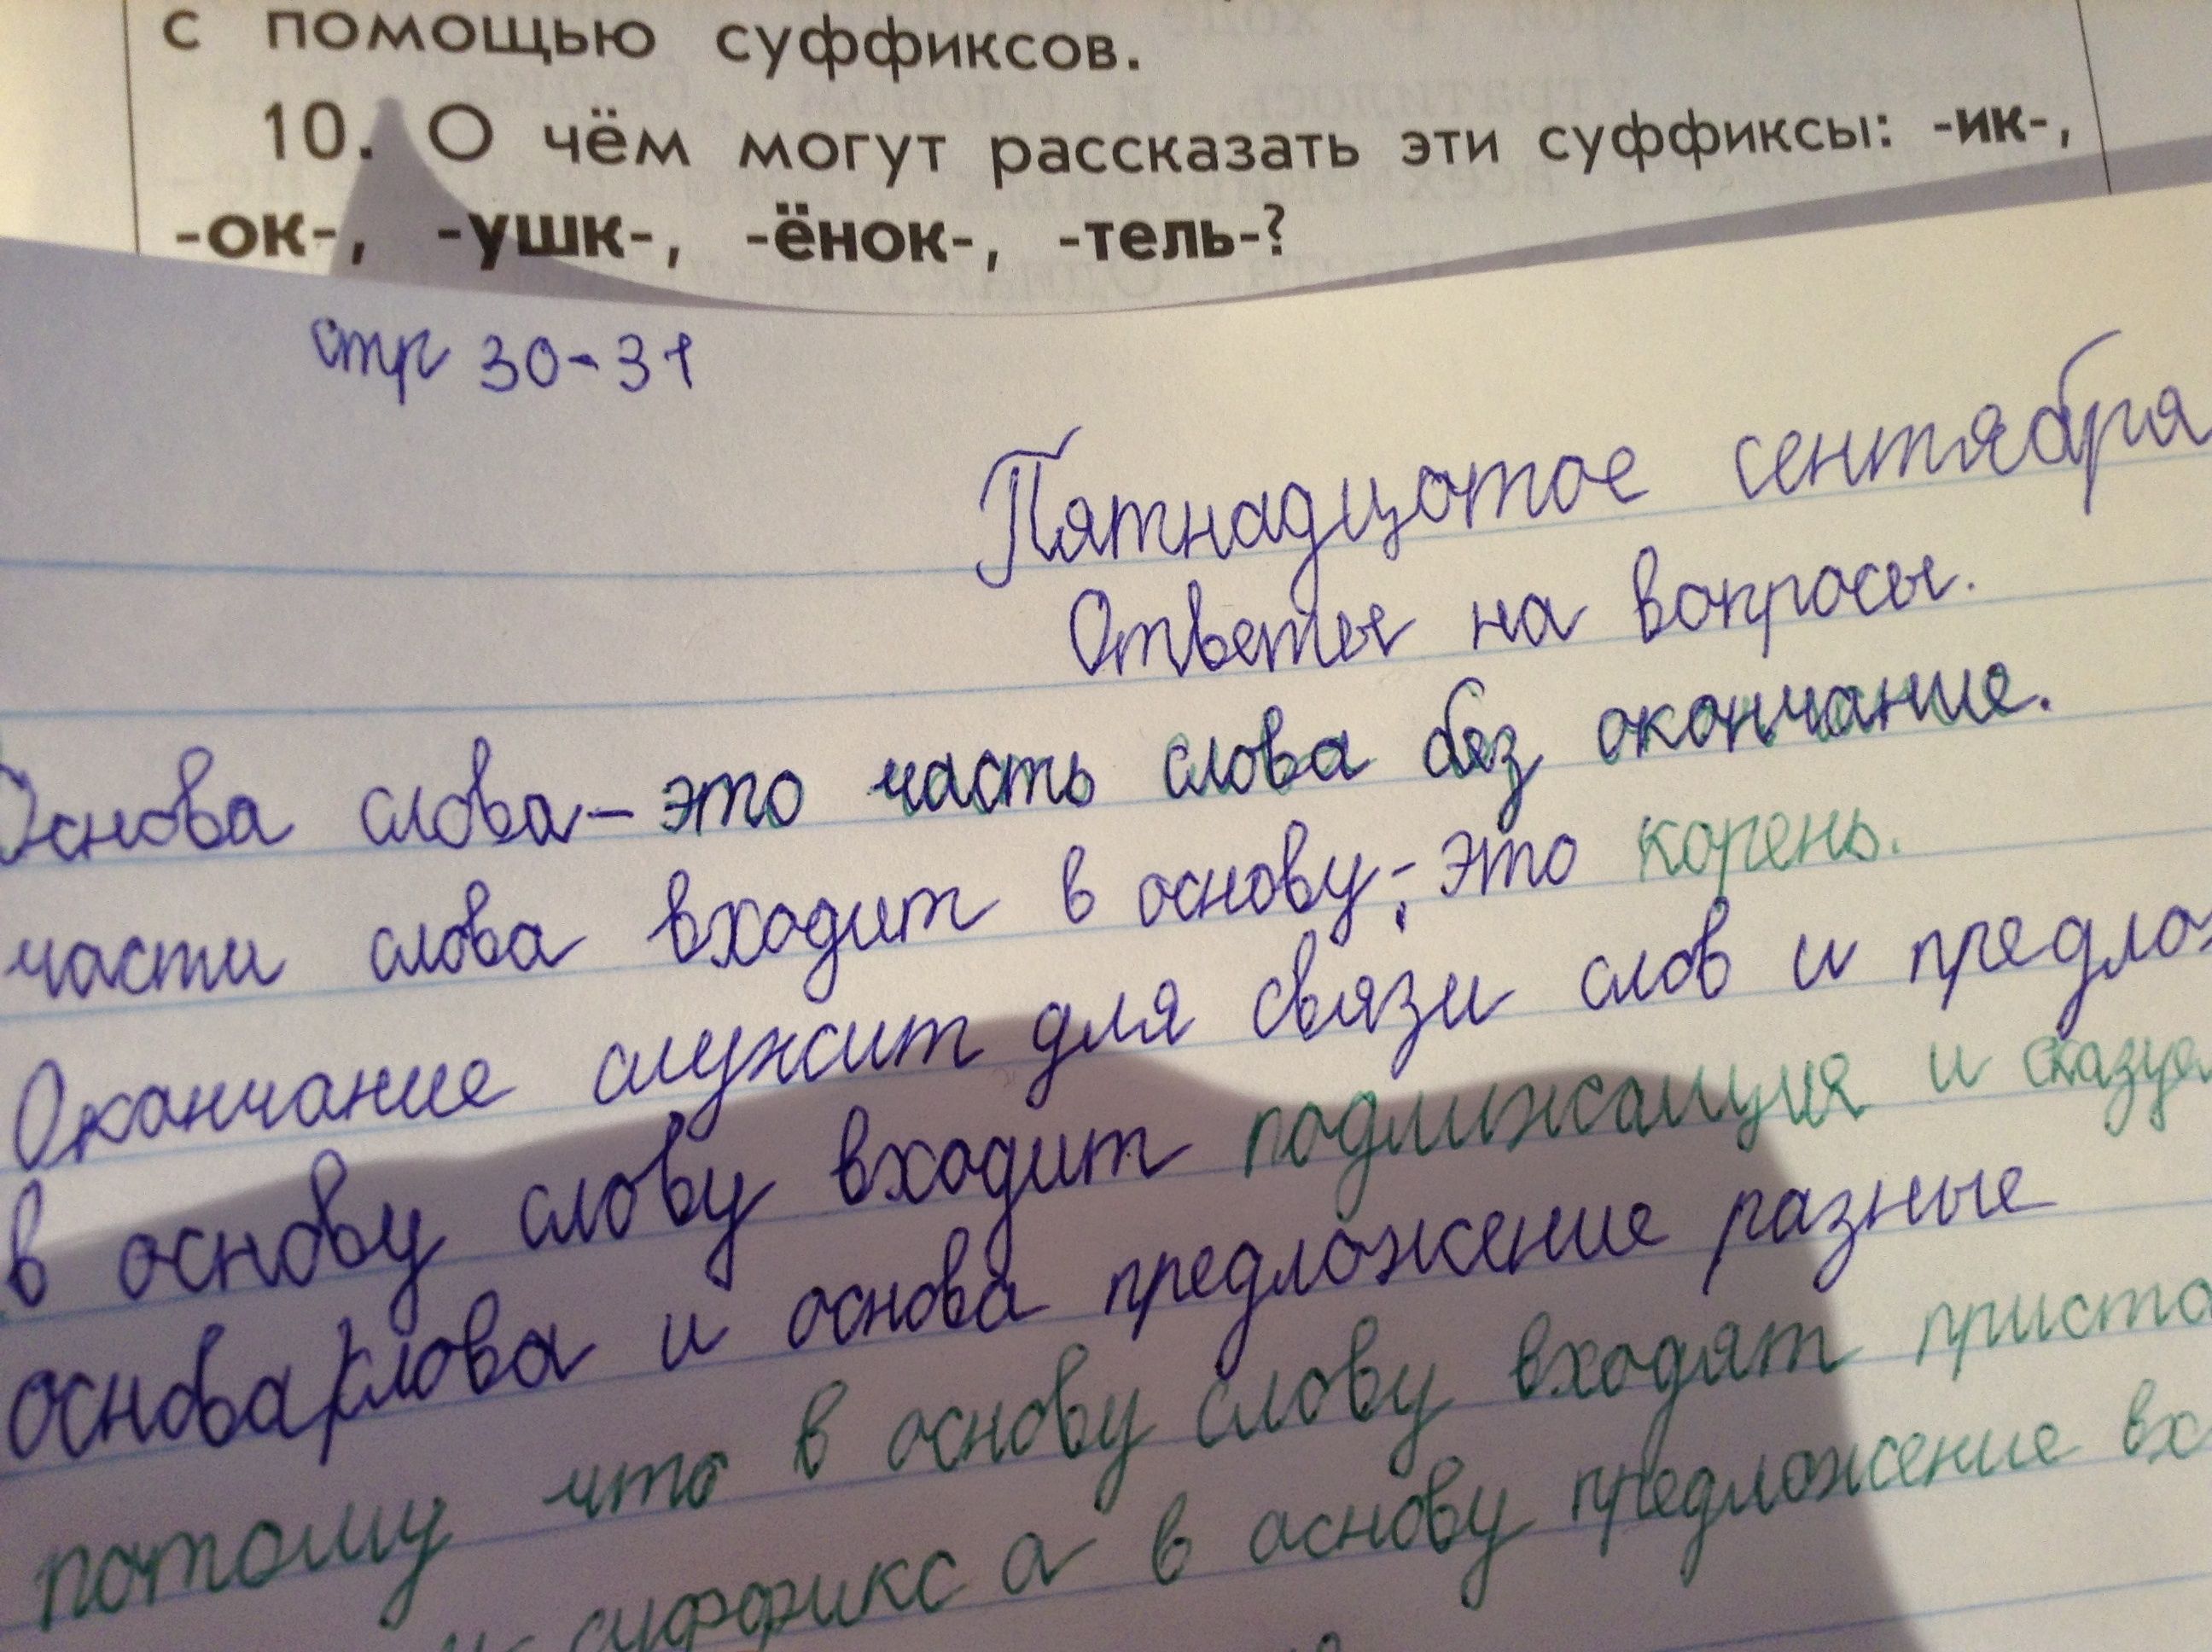 с помощью суффиксов.
10. О чём могут рассказать эти суффиксы: -ик-,
-ок-, -ушк-, -ёнок-, -тель-?
стр 30-31
Пятнадцотое сентября
Ответы на вопросы.
Основа слова - это часть слова без окончание.
части слова входит в основу; - это корень.
Окончание служит для связи слов и предло
в основу слову входит подлижащия и сказуе
основа слова и основа предложение разные
потому что в основу слову входят приста
суффикс а в основу предложение вх